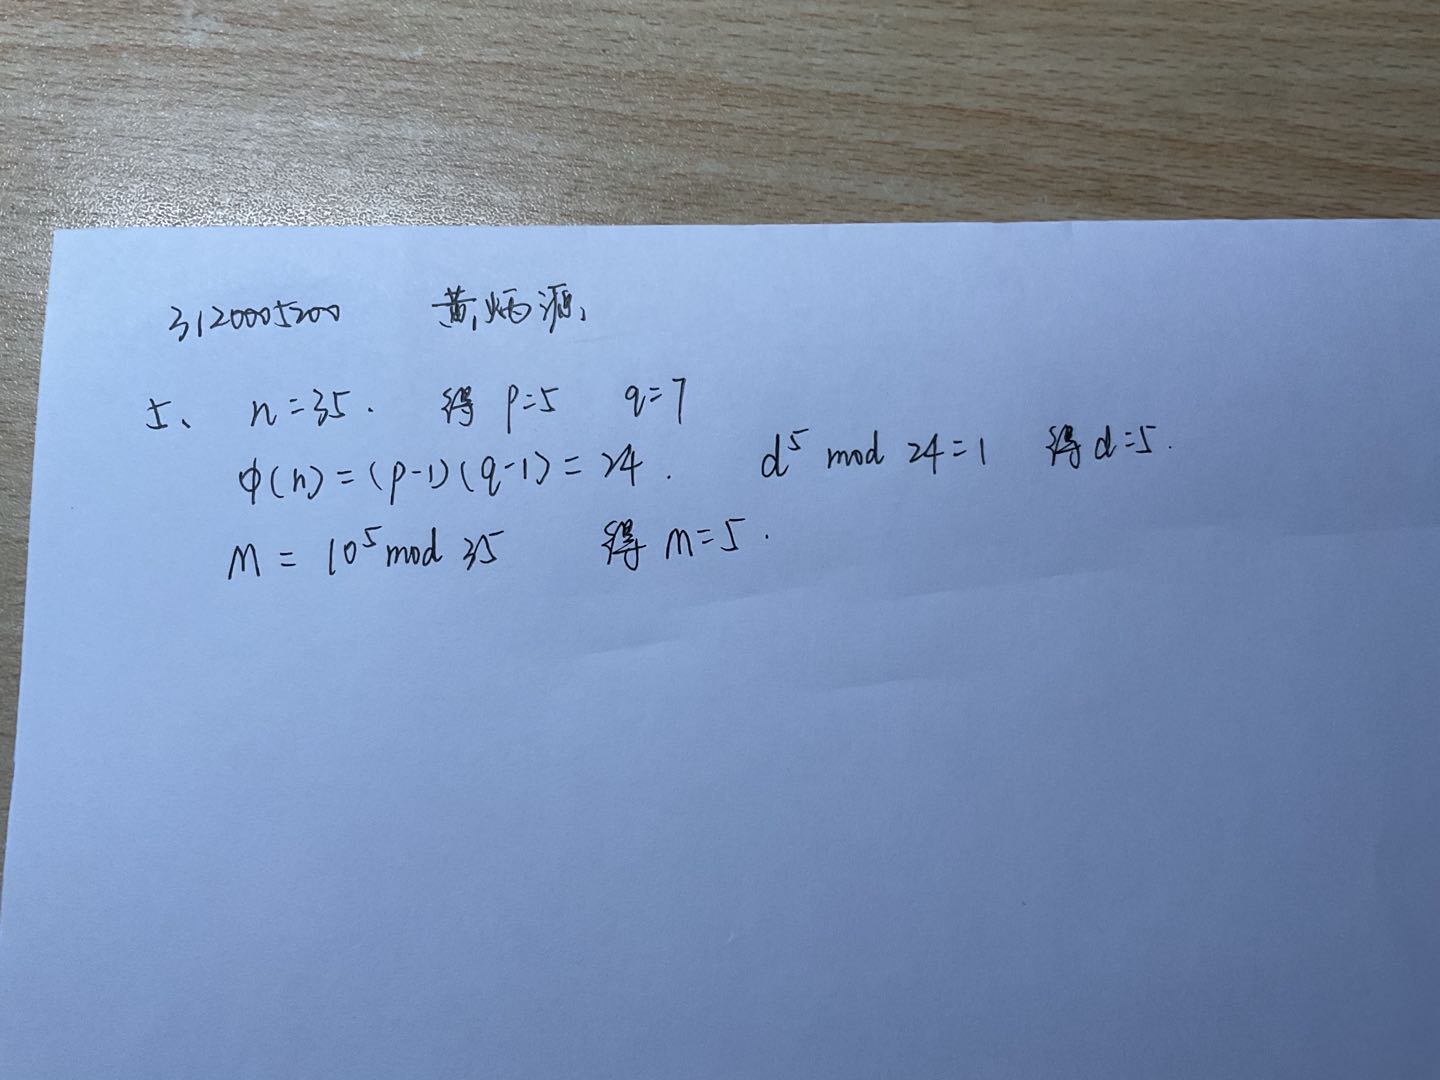 3120005200 黄炳源
5、 n=35. 得 p=5 q=7
φ(n)=(p-1)(q-1)=24. d⁵ mod 24=1 得d=5.
M = 10⁵ mod 35 得 M=5.